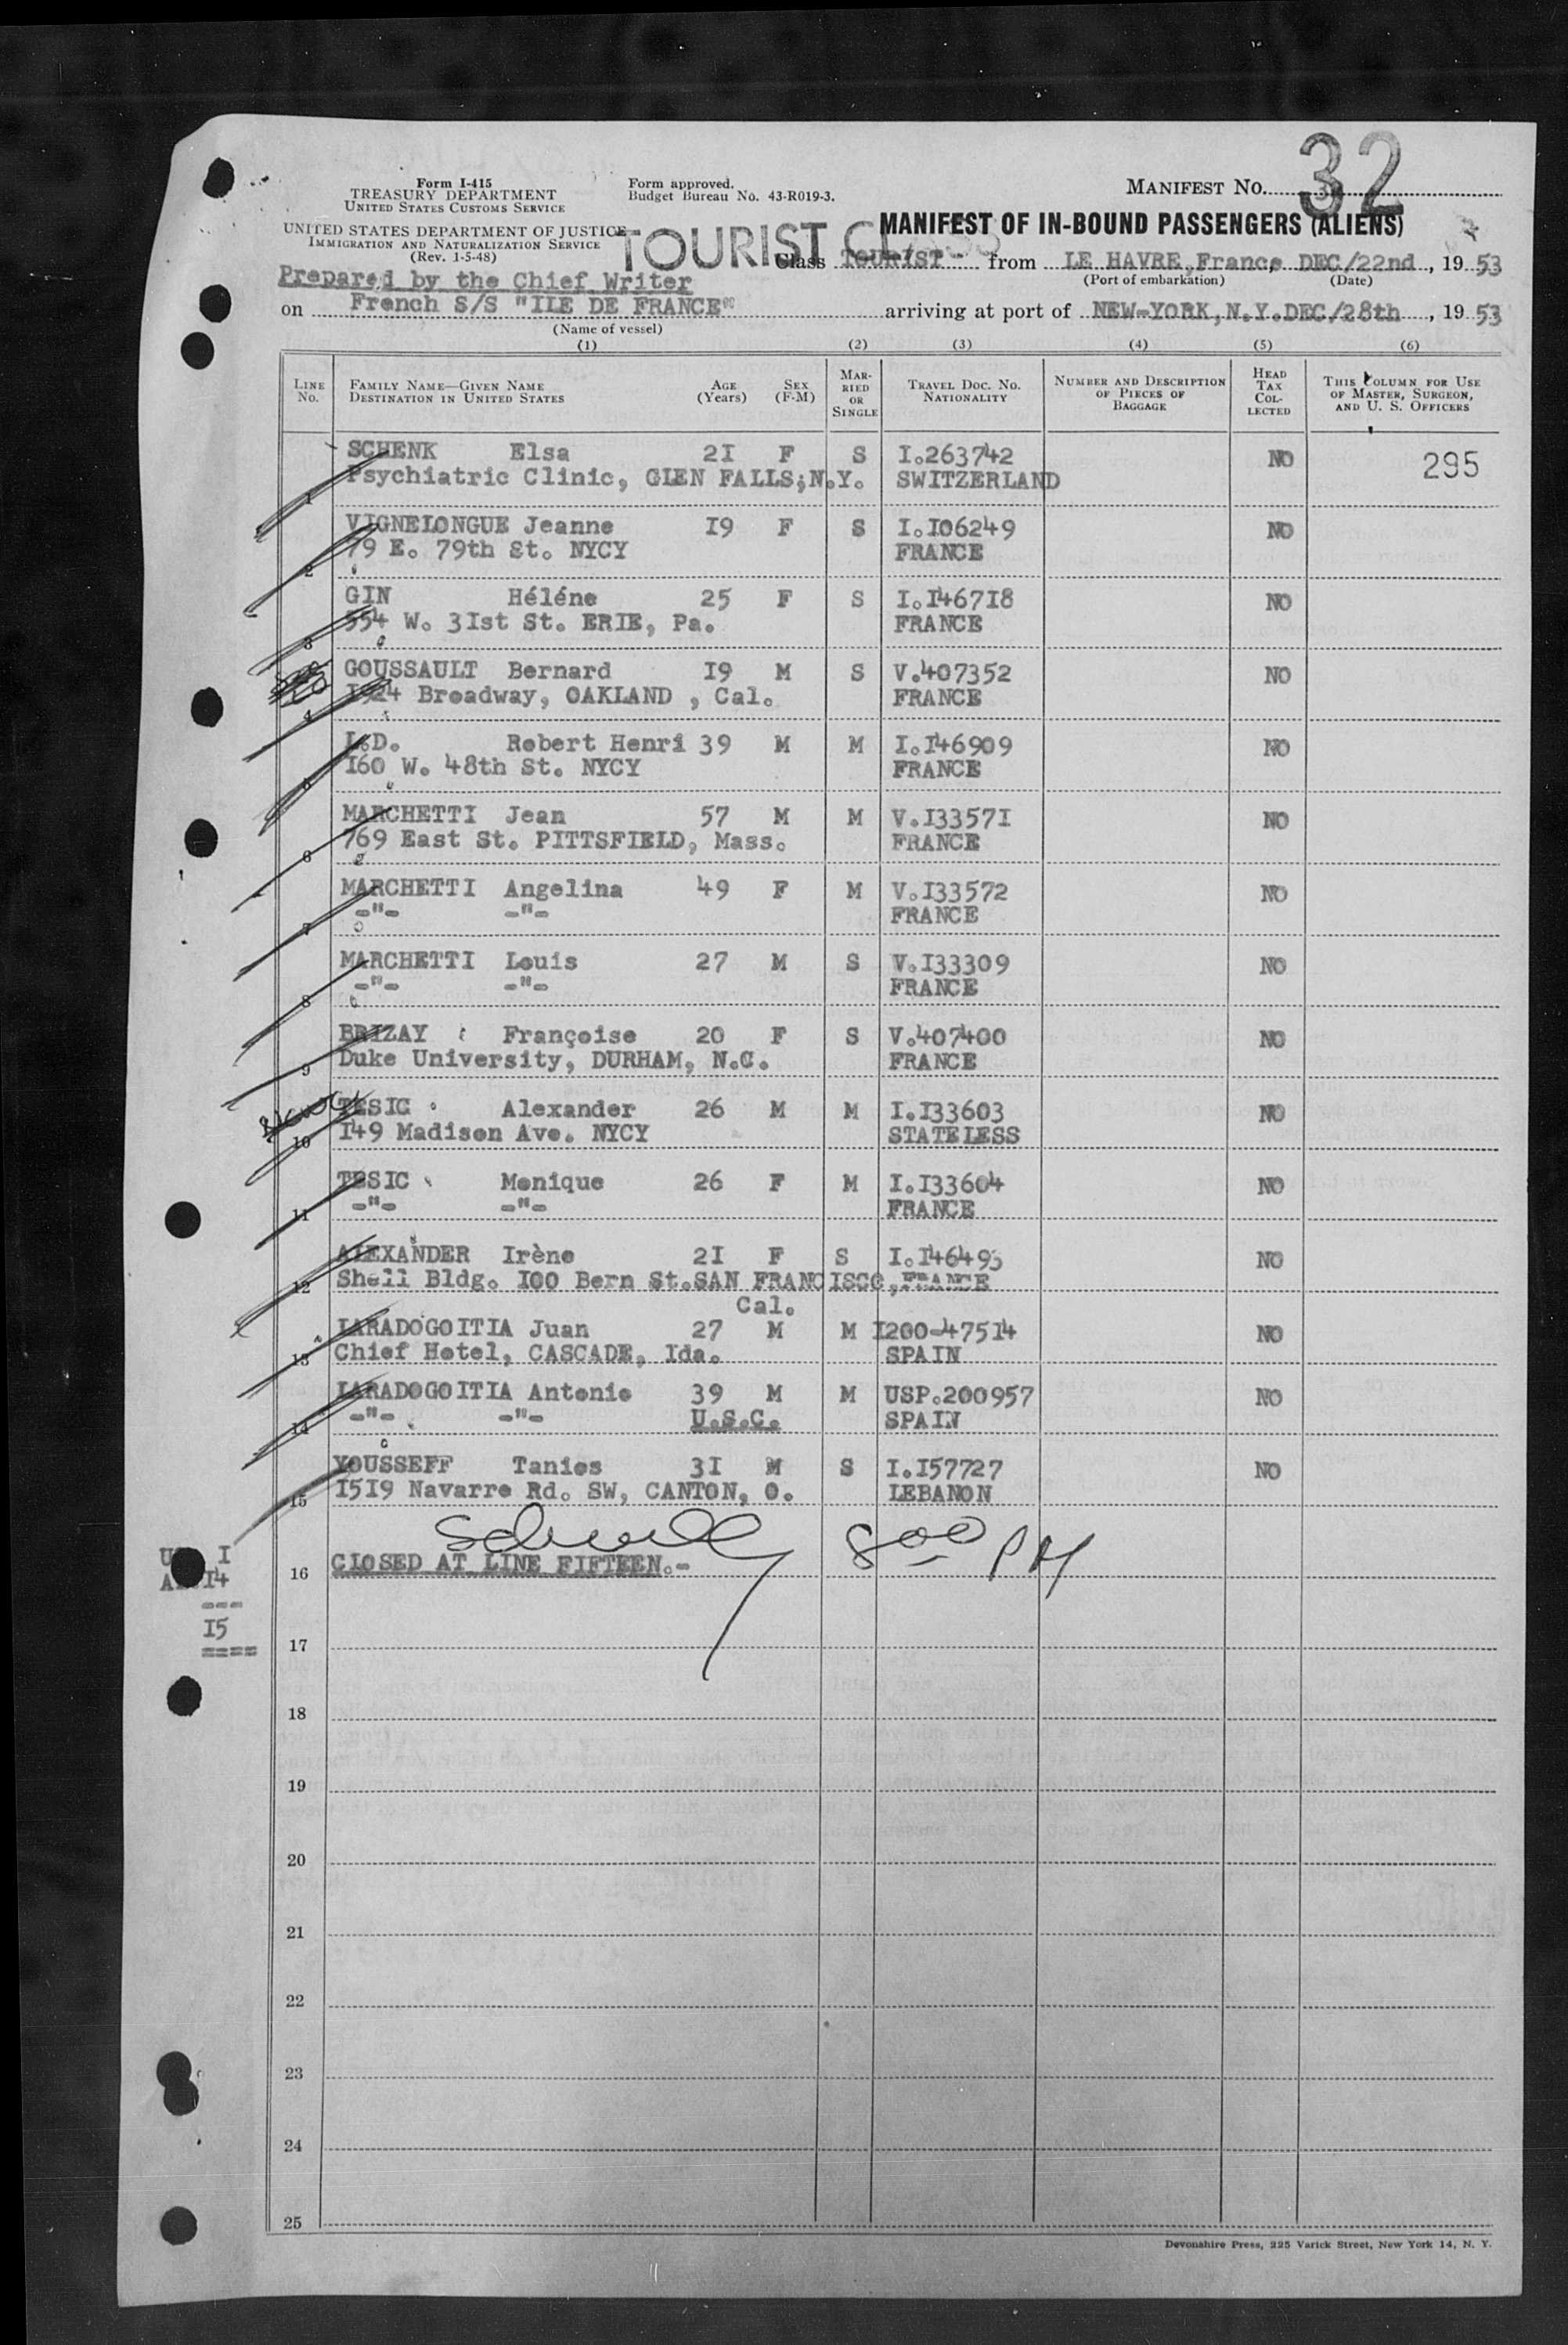 32
Form I-415
TREASURY DEPARTMENT
UNITED STATES CUSTOMS SERVICE
Form approved.
Budget Bureau No. 43-R019-3.
MANIFEST NO.
UNITED STATES DEPARTMENT OF JUSTICE
IMMIGRATION AND NATURALIZATION SERVICE
(Rev. 1-5-48)
TOURIST CLASS
MANIFEST OF IN-BOUND PASSENGERS (ALIENS)
Class TOURIST - from LE HAVRE, France DEC/22nd, 1953
(Port of embarkation) (Date)
Prepared by the Chief Writer
on French S/S "ILE DE FRANCE" arriving at port of NEW-YORK, N.Y. DEC/28th, 1953
(Name of vessel)
(1) (2) (3) (4) (5) (6)
LINE NO.
FAMILY NAME—GIVEN NAME
DESTINATION IN UNITED STATES
AGE (Years)
SEX (F-M)
MARRIED OR SINGLE
TRAVEL DOC. NO.
NATIONALITY
NUMBER AND DESCRIPTION OF PIECES OF BAGGAGE
HEAD TAX COLLECTED
THIS COLUMN FOR USE OF MASTER, SURGEON, AND U. S. OFFICERS
SCHENK Elsa 2I F S I.263742 NO 295
1 Psychiatric Clinic, GLEN FALLS,N.Y. SWITZERLAND
VIGNELONGUE Jeanne I9 F S I.I06249 NO
2 79 E. 79th St. NYCY FRANCE
GIN Héléne 25 F S I.I46718 NO
3 354 W. 3Ist St. ERIE, Pa. FRANCE
GOUSSAULT Bernard I9 M S V.407352 NO
4 I924 Broadway, OAKLAND , Cal. FRANCE
L.D. Robert Henri 39 M M I.I46909 NO
5 I60 W. 48th St. NYCY FRANCE
MARCHETTI Jean 57 M M V.I3357I NO
6 769 East St. PITTSFIELD, Mass. FRANCE
MARCHETTI Angelina 49 F M V.I33572 NO
7 -"- -"- FRANCE
MARCHETTI Louis 27 M S V.I33309 NO
8 -"- -"- FRANCE
BRIZAY Françoise 20 F S V.407400 NO
9 Duke University, DURHAM, N.C. FRANCE
TESIC Alexander 26 M M I.I33603 NO
10 I49 Madison Ave. NYCY STATELESS
TESIC Monique 26 F M I.I33604 NO
11 -"- -"- FRANCE
ALEXANDER Irène 2I F S I.I46493 NO
12 Shell Bldg. I00 Bern St.SAN FRANCISCO, FRANCE
Cal.
LARADOGOITIA Juan 27 M M I200-475I4 NO
13 Chief Hotel, CASCADE, Ida. SPAIN
LARADOGOITIA Antonio 39 M M USP.200957 NO
14 -"- -"- U.S.C. SPAIN
YOUSSEFF Tanios 3I M S I.I57727 NO
15 I5I9 Navarre Rd. SW, CANTON, O. LEBANON
8 00 PM
I
16 CLOSED AT LINE FIFTEEN.-
I4
---
I5
====
17
18
19
20
21
22
23
24
25
Devonshire Press, 225 Varick Street, New York 14, N. Y.